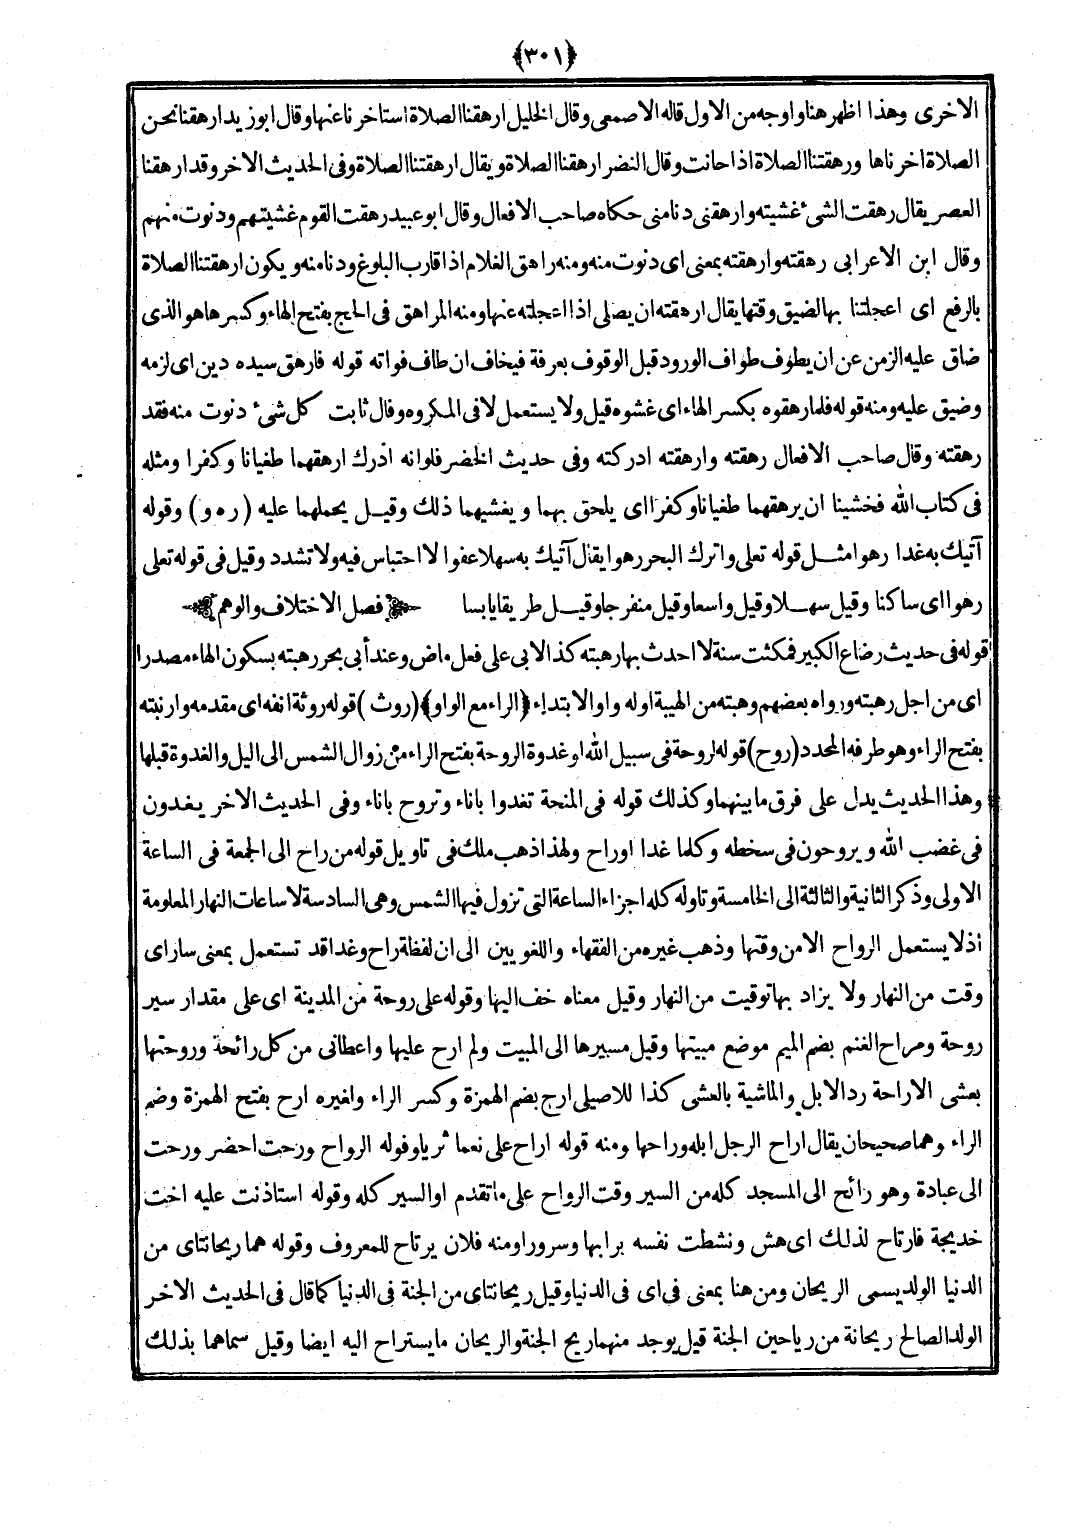 ﴿٣٠١﴾
الاخرى وهذا اظهر هنا واوجه من الاول قاله الاصمعى وقال الخليل ارهقنا الصلاة استاخرنا عنها وقال ابو زيد ارهقنا نحن
الصلاة اخرناها ورهقتنا الصلاة اذا حانت وقال النضر ارهقنا الصلاة ويقال ارهقتنا الصلاة وفى الحديث الاخر وقد ارهقنا
العصر يقال رهقت الشئ غشيته وارهقنى دنا منى حكاه صاحب الافعال وقال ابو عبيد رهقت القوم غشيتهم ودنوت منهم
وقال ابن الاعرابى رهقته وارهقته بمعنى اى دنوت منه ومنه راهق الغلام اذا قارب البلوغ ودنا منه ويكون ارهقتنا الصلاة
بالرفع اى اعجلتنا بها لضيق وقتها يقال ارهقته ان يصلى اذا اعجلته عنها ومنه المراهق فى الحج بفتح الهاء وكسرها هو الذى
ضاق عليه الزمن عن ان يطوف طواف الورود قبل الوقوف بعرفة فيخاف ان طاف فواته قوله فارهق سيده دين اى لزمه
وضيق عليه ومنه قوله فلما رهقوه بكسر الهاء اى غشوه قيل ولا يستعمل لا فى المكروه وقال ثابت كل شئ دنوت منه فقد
رهقته وقال صاحب الافعال رهقته وارهقته ادركته وفى حديث الخضر فلو انه اذرك ارهقهما طغيانا وكفرا ومثله
فى كتاب الله فخشينا ان يرهقهما طغيانا وكفرا اى يلحق بهما ويغشيهما ذلك وقيل يحملهما عليه (ره و) وقوله
آتيك به غدا رهوا مثل قوله تعلى واترك البحر رهوا يقال آتيك به سهلا عفوا لا احتباس فيه ولا تشدد وقيل فى قوله تعلى
رهوا اى ساكنا وقيل سهلا وقيل واسعا وقيل منفرجا وقيل طريقا يابسا ﴿فصل الاختلاف والوهم﴾
قوله فى حديث رضاع الكبير فمكثت سنة لا احدث بها رهبته كذا لابى على فعل ماض وعند أبى بحر رهبته بسكون الهاء مصدرا
اى من اجل رهبته ورواه بعضهم وهبته من الهيبة اوله واو الابتداء ﴿الراء مع الواو﴾ (روث) قوله روثة انفه اى مقدمه وارنبته
بفتح الراء وهو طرفه المحدد (روح) قوله لروحة فى سبيل الله او غدوة الروحة بفتح الراء من زوال الشمس الى اليل والغدوة قبلها
وهذا الحديث يدل على فرق ما بينهما وكذلك قوله فى المنحة تغدوا باناء وتروح باناء وفى الحديث الاخر يغدون
فى غضب الله ويروحون فى سخطه وكلما غدا اوراح ولهذا ذهب ملك فى تاويل قوله من راح الى الجمعة فى الساعة
الاولى وذكر الثانية والثالثة الى الخامسة وتاوله كله اجزاء الساعة التى تزول فيها الشمس وهى السادسة لا ساعات النهار المعلومة
اذلا يستعمل الرواح الا من وقتها وذهب غيره من الفقهاء واللغويين الى ان لفظة راح وغدا قد تستعمل بمعنى سار اى
وقت من النهار ولا يزاد بها توقيت من النهار وقيل معناه خف اليها وقوله على روحة من المدينة اى على مقدار سير
روحة ومراح الغنم بضم الميم موضع مبيتها وقيل مسيرها الى المبيت ولم ارح عليها واعطانى من كل رائحة وروحتها
بعشى الاراحة رد الابل والماشية بالعشى كذا للاصيلى ارح بضم الهمزة وكسر الراء ولغيره ارح بفتح الهمزة وضم
الراء وهما صحيحان يقال اراح الرجل ابله وراحها ومنه قوله اراح على نعما ثريا وقوله الرواح ورحت احضر ورحت
الى عبادة وهو رائح الى المسجد كله من السير وقت الرواح على ما تقدم او السير كله وقوله استاذنت عليه اخت
خديجة فارتاح لذلك اى هش ونشطت نفسه برابها وسرورا ومنه فلان يرتاح للمعروف وقوله هما ريحانتاى من
الدنيا الولد يسمى الريحان ومن هنا بمعنى فى اى فى الدنيا وقيل ريحانتاى من الجنة فى الدنيا كما قال فى الحديث الاخر
الولد الصالح ريحانة من رياحين الجنة قيل يوجد منهما ريح الجنة والريحان ما يستراح اليه ايضا وقيل سماهما بذلك